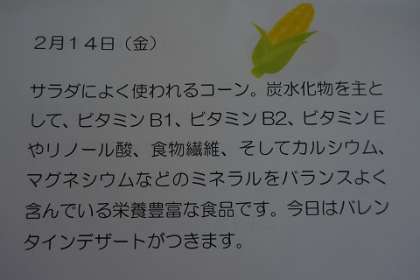 2月14日（金）
サラダによく使われるコーン。炭水化物を主と
して、ビタミンB1、ビタミンB2、ビタミンE
やリノール酸、食物繊維、そしてカルシウム、
マグネシウムなどのミネラルをバランスよく
含んでいる栄養豊富な食品です。今日はバレン
タインデザートがつきます。